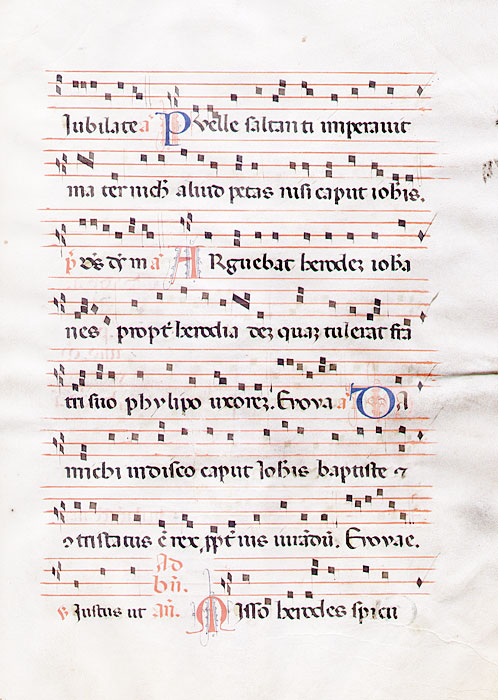 Iubilate a Puelle saltanti imperavit
mater nich aliud petas nisi caput iohis.
a Arguebat herodez ioha
nes propt herodia dez quaz tulerat fra
tri suo phylipo uxorez. Evova a Da
michi in disco caput Iohis baptiste ⁊
ↄtristatus ē rex, ppt ius iurādū. Evovae.
Iustus ut Ad bn. an. Misso herodes spicu